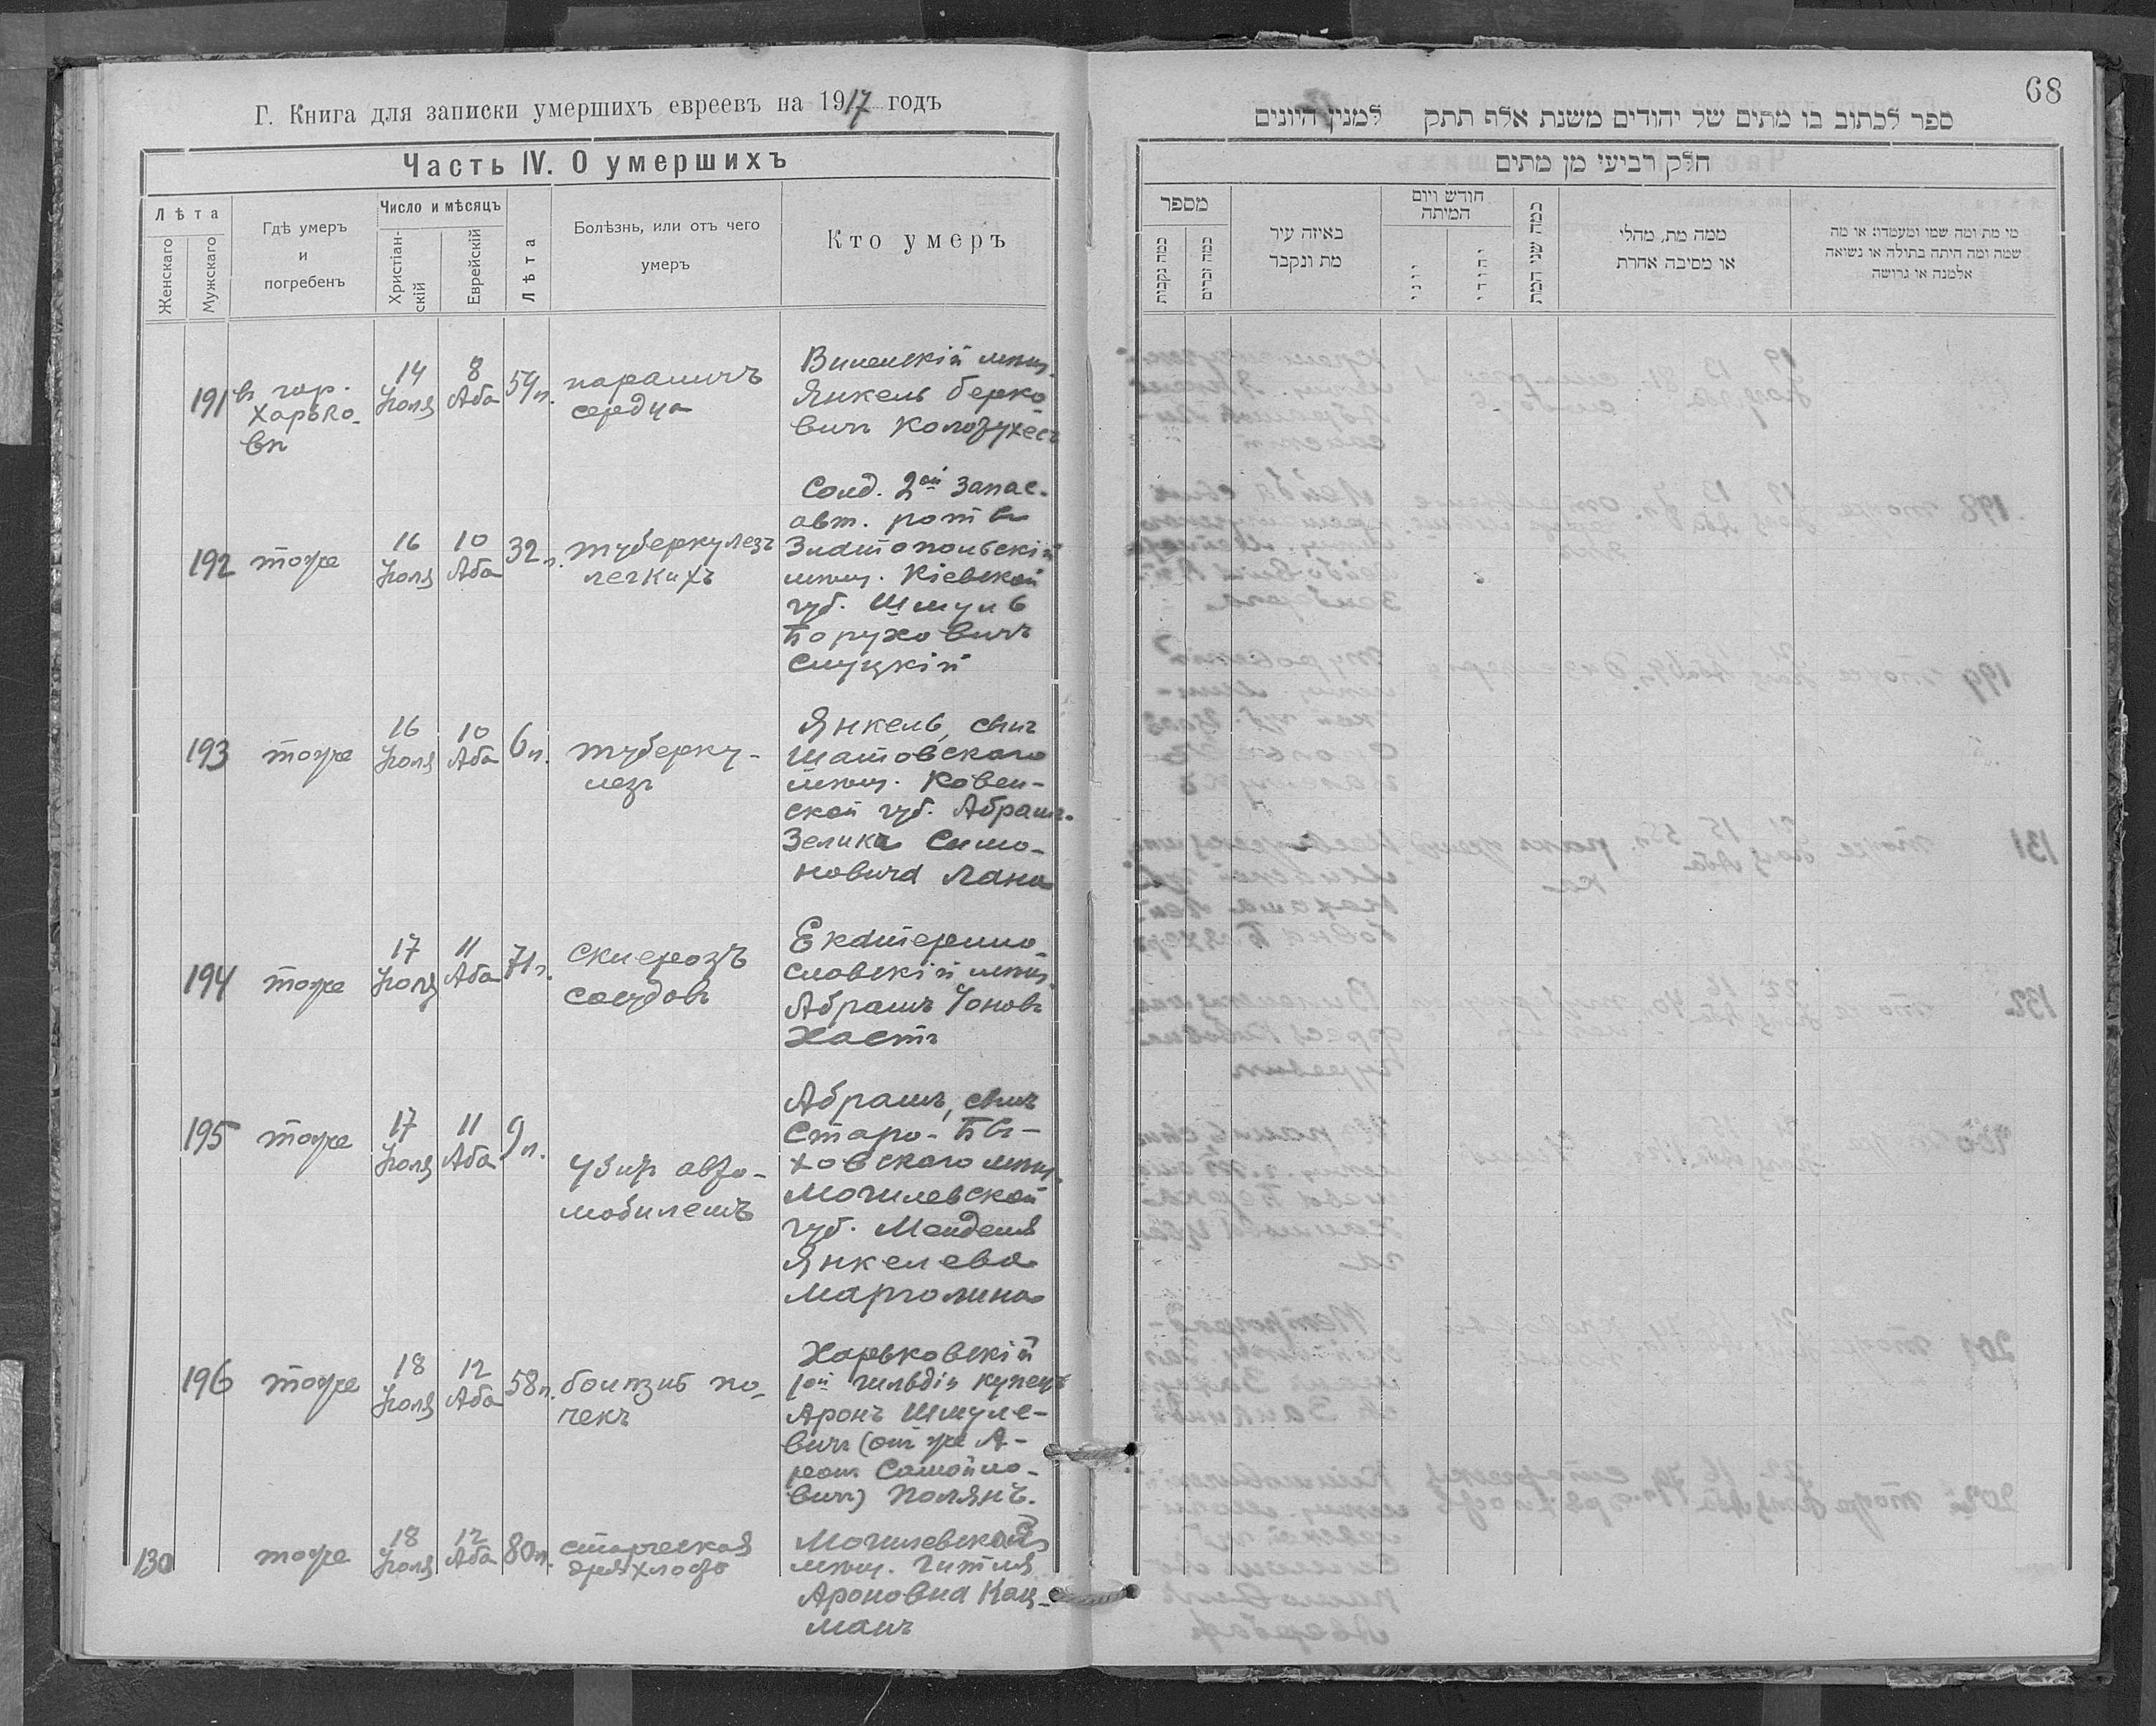 Г. Книга для записки умершихъ евреевъ на 1917 годъ
Часть IV. О умершихъ
Лѣта
Женскаго
Мужскаго
Гдѣ умеръ
и
погребенъ
Число и мѣсяцъ
Христіан-
скій
Еврейскій
Лѣта
Болѣзнь, или отъ чего
умеръ
Кто умеръ
191
въ гор.
Харько-
вѣ
14
Іюля
8
Аба
59 л.
параличъ
сердца
Виленскій мѣщ.
Янкель Берко-
вичъ
192
тоже
16
Іюля
10
Аба
32 л.
туберкулезъ
легкихъ
Солд. 2ой запас.
авт. роты
Златопольскій
мѣщ. Кіевской
губ. Шмуль
Боруховичъ
Слуцкій
193
тоже
16
Іюля
10
Аба
6 л.
туберку-
лезъ
Янкель, сынъ
Шатовскаго
мѣщ. Ковен-
ской губ. Абрамъ-
Зелика Симо-
новича Лана
194
тоже
17
Іюля
11
Аба
71 л.
склерозъ
сосудовъ
Екатерино-
славскій мѣщ.
Абрамъ Іоновъ
Хастъ
195
тоже
17
Іюля
11
Аба
9 л.
убитъ авто-
мобилемъ
Абрамъ, сынъ
Старо-Бы-
ховскаго мѣщ.
Могилевской
губ. Менделя
Янкелева
Марголина
196
тоже
18
Іюля
12
Аба
58 л.
болѣзнь по-
чекъ
Харьковскій
1ой гильдіи купецъ
Аронъ Шмуле-
вичъ (онъ же А-
ронъ Самойло-
вичъ) Полякъ.
130
тоже
18
Іюля
12
Аба
80 л.
старческая
дряхлость
Могилевская
мѣщ. Гитля
Ароновна Кац-
манъ
68
ספר לכתוב בו מתים של יהודים משנת אלף תתק למנין היונים
חלק רביעי מן מתים
מספר
כמה נקבות
כמה זכרים
באיזה עיר
מת ונקבר
חודש ויום
המיתה
יוני
יהודי
כמה שני המת
ממה מת, מחלי
או מסיבה אחרת
מי מת ומה שמו ומעמדו: או מה
שמה ומה היתה בתולה או נשיאה
אלמנה או גרושה